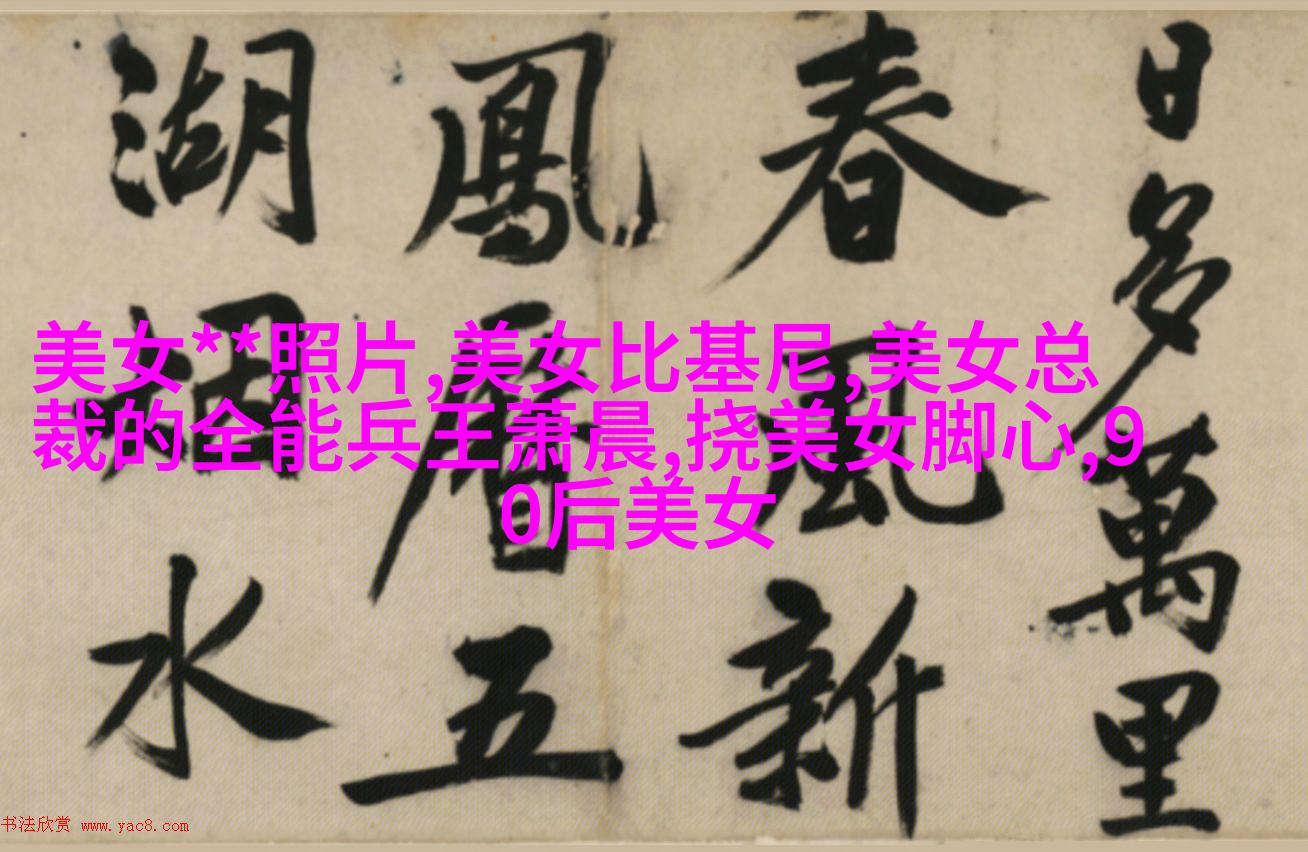 日多萬里
春風新
鳳曆五
湖烟水
美女**照片,美女比基尼,美女总
裁的全能兵王萧晨,挠美女脚心,9
0后美女
书法欣赏 www.yac8.com